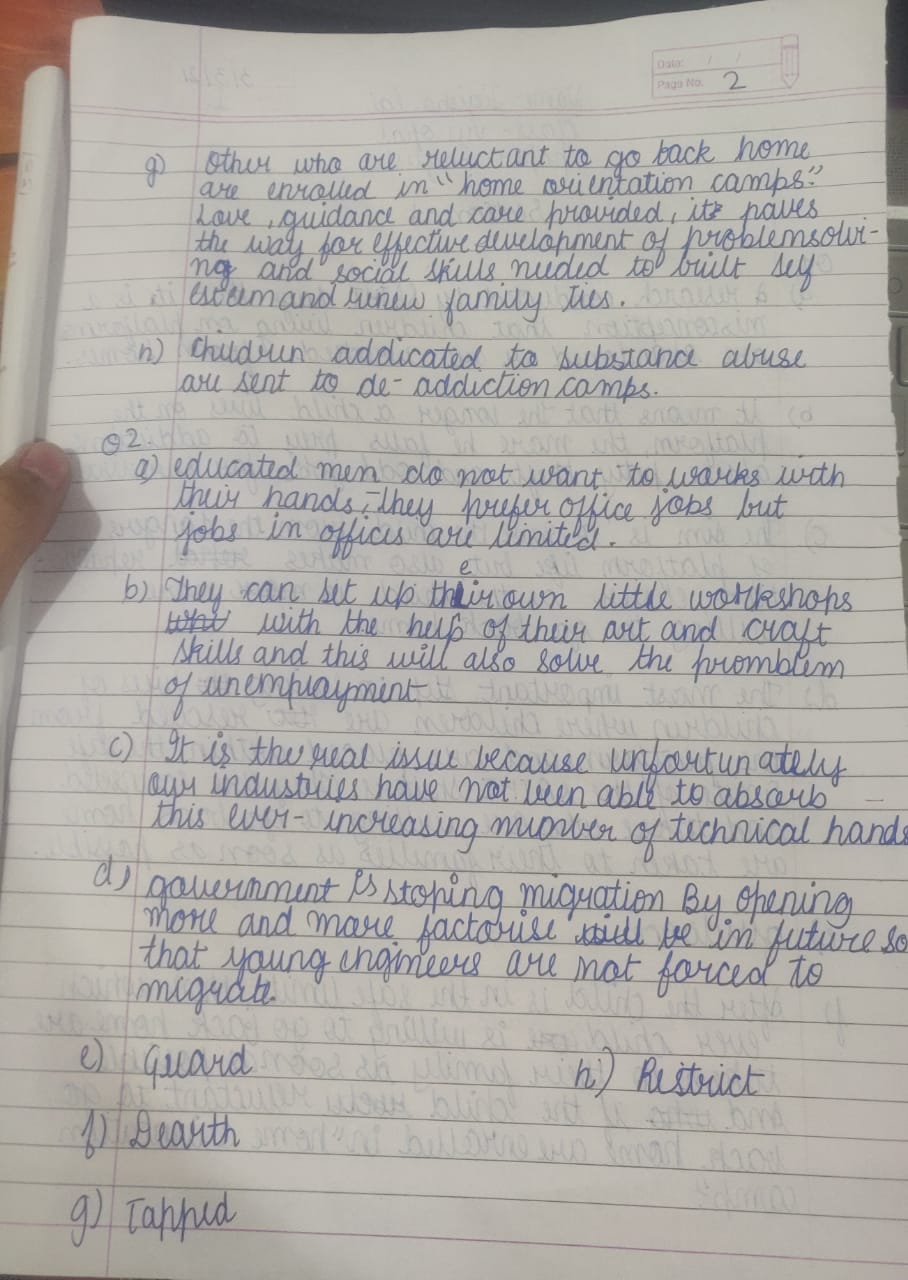 Date: / /
Page No. 2
g) Other who are reluctant to go back home
are enrolled in "home orientation camps."
Love, guidance and care provided, it paves
the way for effective development of problemsolvi-
ng and social skills needed to built self
esteem and renew family ties.
h) Children addicated to substance abuse
are sent to de-addiction camps.
Q2.
a) educated men do not want to works with
their hands, They prefer office jobs but
jobs in offices are limited.
b) They can set up their own little workshops
with the help of their art and craft
skills and this will also solve the promblem
of unemployment
c) It is the real issue because unfortunately
our industries have not been able to absorb
this ever-increasing number of technical hands
d) government is stoping migration By opening
more and more factorise in future so
that young engineers are not forced to
migrate.
e) Guard h) Restrict
f) Dearth
g) Tapped